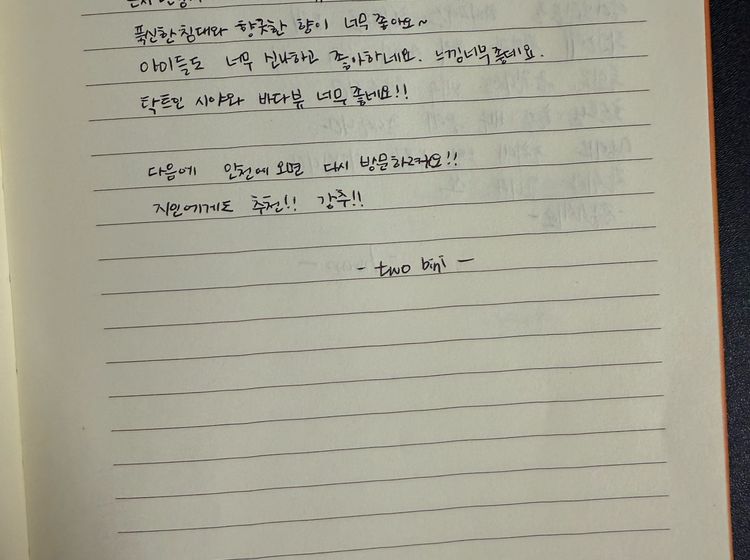 푹신한 침대와 향긋한 향이 너무 좋아요~
아이들도 너무 신나하고 좋아하네요. 느낌너무좋네요.
탁트인 시야와 바다뷰 너무 좋네요!!
다음에 인천에 오면 다시 방문하려구요!!
지인에게도 추천!! 강추!!
- two bini -